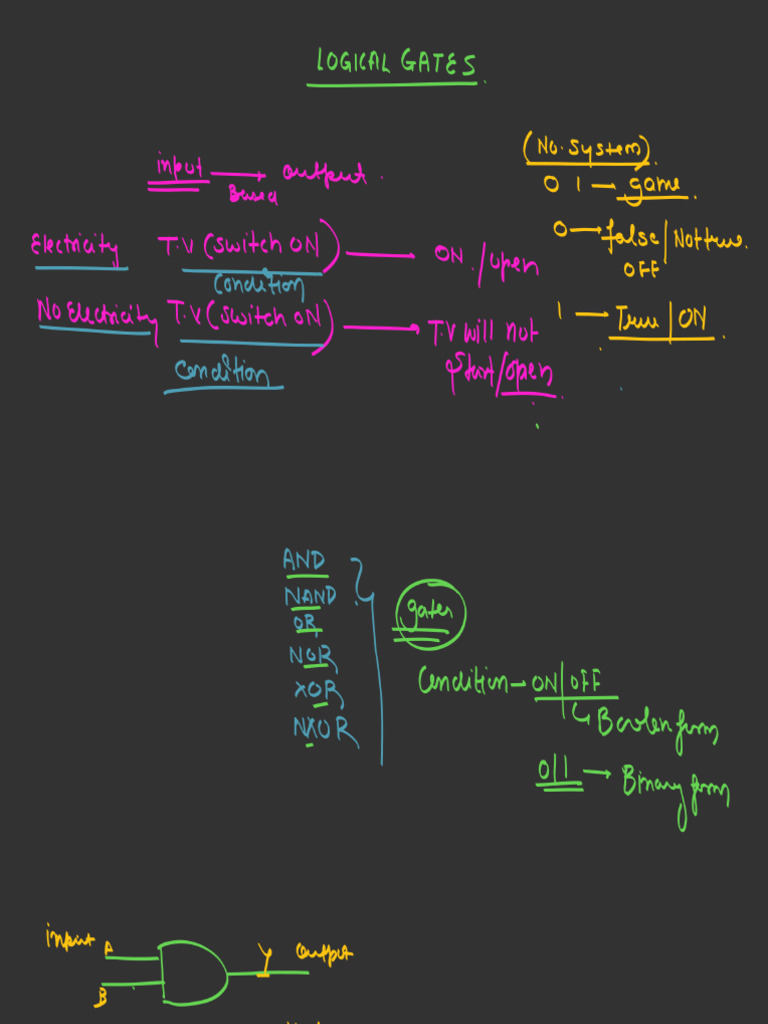 LOGICAL GATES.
(No. System).
input → output.
Based
0 1 → game.
0 → false | Not true.
OFF
Electricity T.V (switch ON) → ON. / open
Condition
No Electricity T.V (switch ON) → T.V will not
Start/open.
1 → True | ON.
Condition
AND
NAND
OR
NOR
XOR
NXOR
gates
Condition → ON | OFF
↳ Boolen form
0 | 1 → Binary form
input A
B
Y output